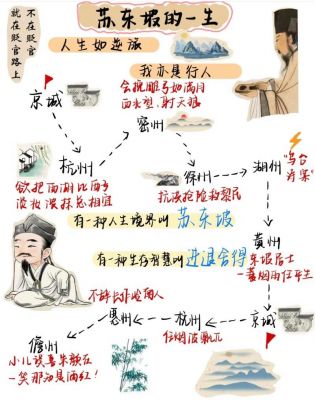 苏东坡的一生
不在贬官
就在贬官路上
人生如逆旅
我亦是行人
京城
杭州
欲把西湖比西子
淡妆浓抹总相宜
密州
会挽雕弓如满月
西北望,射天狼
徐州
抗洪抢险救黎民
湖州
"乌台
诗案"
有一种人生境界叫 苏东坡
有一种生存智慧叫 进退舍得
黄州
东坡居士
一蓑烟雨任平生
京城
杭州
惠州
不辞长作岭南人
儋州
小儿误喜朱颜在
一笑那知是酒红!